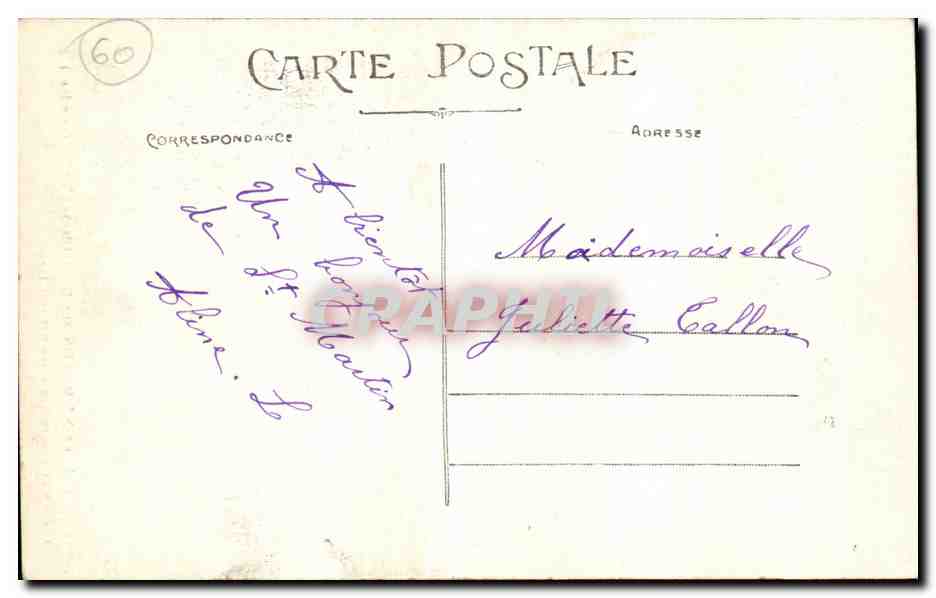 60
CARTE POSTALE
CORRESPONDANCE
ADRESSE
A bientôt
Un bonjour
de St Martin
Aline. L
Mademoiselle
Juliette Tallon
CPAPHIL